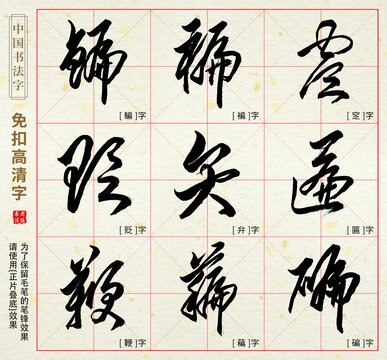 中国书法字
免扣高清字
为了保留毛笔的笔锋效果
请使用[正片叠底]效果
[ 鳊 ]字
[ 褊 ]字
[ 窆 ]字
[ 贬 ]字
[ 弁 ]字
[ 匾 ]字
[ 鞭 ]字
[ 碥 ]字